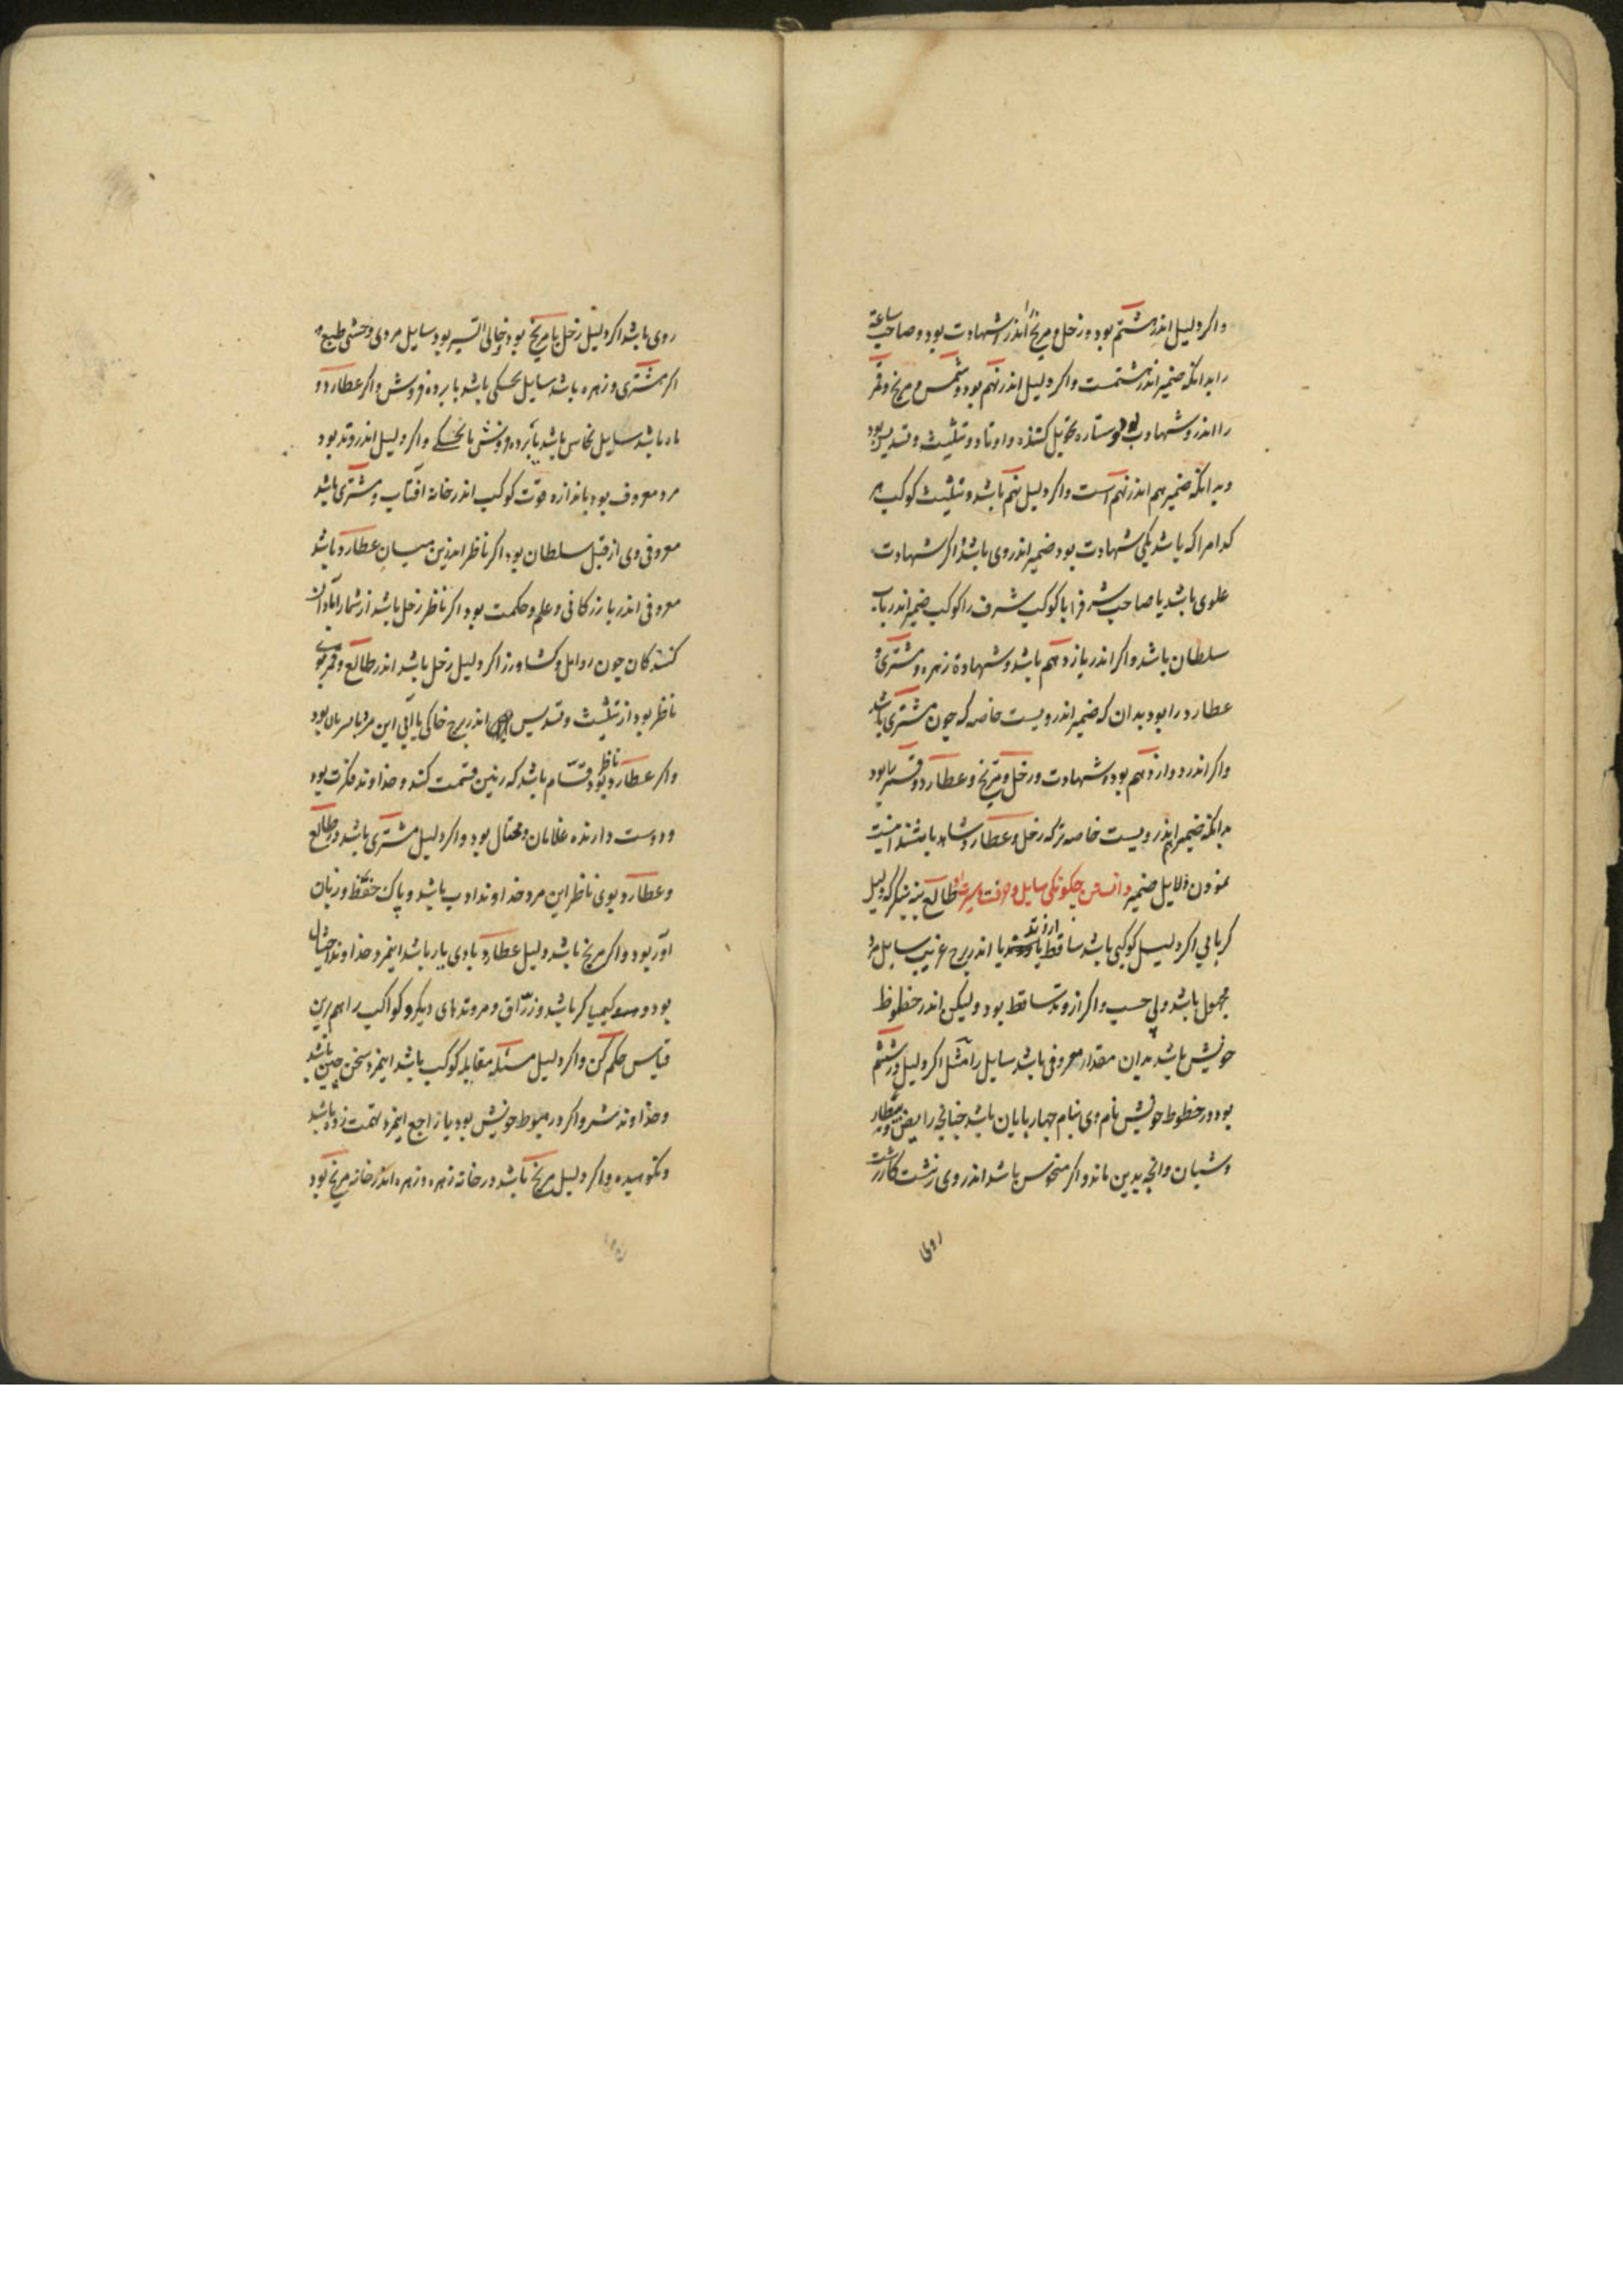 واکر دلیل اندر هشتم بود و زحل و مریخ را اندر او شهادت بود و صاحب ساعة
را بدانکه ضمیر اندر هشتمست واکر دلیل اندر نهم بود و شمس و مریخ و قمر
را اندرو شهادت بود و ستاره تحویل کننده و اوتاد و تثلیث و تسدیس بود
بدانکه ضمیر هم اندر نهم است واکر دلیل نهم باشد و تثلیث کوکب
کدامرا که باشد یکی شهادت بود ضمیر اندر وی باشد اکر شهادت
علوی باشد یا صاحب شرف را با کوکب شرف را کوکب ضمیر اندر باب
سلطان باشد واکر اندر یازدهم باشد و شهادة زهره و مشتری و
عطارد را بود بدان که ضمیر اندرویست خاصه که جون مشتری باشد
واکر اندر دوازدهم بود و شهادت و زحل و مریخ و عطارد و قمر را بود
بدانکه ضمیر اندرویست خاصه تر که زحل و عطارد شاهد باشند اینست
نمودن دلایل ضمیر دانستن جکونکی سایل و طالع ببین بنکر که دلیل
کر یابی اکر دلیل کوکبی باشد ساقط یا از وتد یا اندر برج غریب سایل مرد
مجهول باشد و بی حسب واکر از وتد ساقط بود و لیکن اندر حظوظ
خویش باشد بدان مقدار معروفی باشد سایل را مثل اکر دلیل در ششم
بود در حظوظ خویش نام وی بنام جهار بایان باشد جنانجه رایض و بیطار
و شبان و انجه بدین ماند واکر منحوس باشد اندر وی زشت کار زشت
روی
روی باشد اکر دلیل زحل با مریخ بود و خالی السیر بود سایل مردی وحشی طبع و
اکر مشتری و زهره باشد سایل باشد یا برده فروش واکر عطارد و
ماه باشد سایل نخاس باشد یا برده فروش یا واکر دلیل اندر وتد بود
مرد معروف بود باندازه قوت کوکب اندر خانه افتاب و مشتری باشد
معروفی وی از قبل سلطان بود اکر ناظر اندرین میان عطارد باشد
معروفی اندر بازرکانی و علم و حکمت بود اکر ناظر زحل باشد از شمار آبادان
کنندکان جون و کشاورز اکر دلیل زحل باشد اندر طالع و قمر بوی
ناظر بود از تثلیث و تسدیس اندر برج خاکی یا آبی این مرد بود
واکر عطارد ناظر بود قسّام باشد که زمین قسمت کند و خداوند فکرت بود
و دوست دارنده غلامان و محتال بود واکر دلیل مشتری باشد در طالع
و عطارد بوی ناظر این مرد خداوند ادب باشد و پاک حفظ و زبان
آور بود واکر مریخ باشد دلیل عطارد با وی یار باشد اینمرد خداوند
بود و کیمیاکر باشد و زرّاق و مر وتدهای دیکر و کواکب را هم برین
قیاس حکم کن واکر دلیل مسئله مقابله کوکب باشد اینمرد سخن جین باشد
و خداوند شر واکر در هبوط خویش بود یا راجع اینمرد تهمت زده باشد
و نکوهیده واکر دلیل مریخ باشد در خانه زهره و زهره اندر خانه مریخ بود